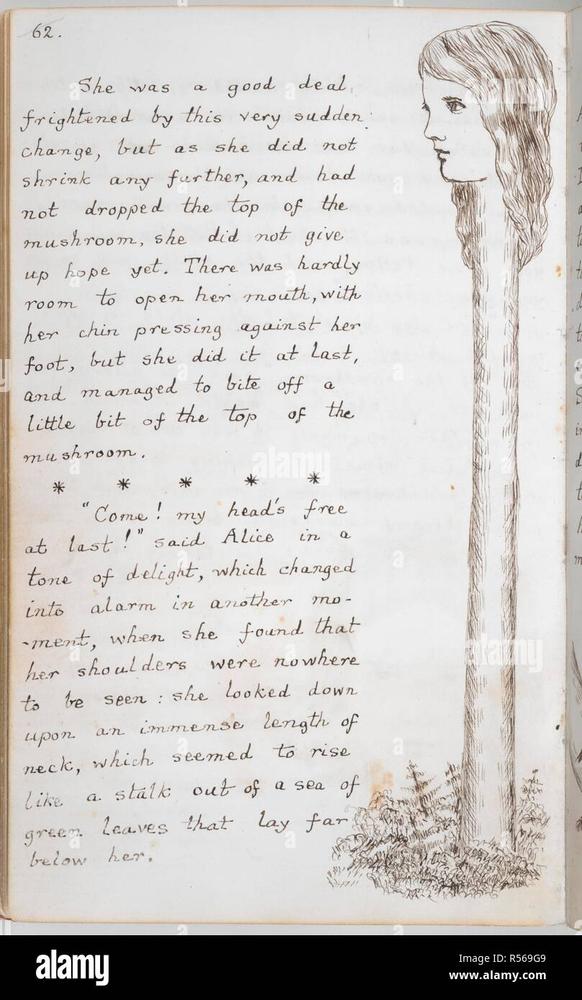 62.
She was a good deal
frightened by this very sudden
change, but as she did not
shrink any further, and had
not dropped the top of the
mushroom, she did not give
up hope yet. There was hardly
room to open her mouth, with
her chin pressing against her
foot, but she did it at last,
and managed to bite off a
little bit of the top of the
mushroom.
* * * * *
"Come! my head's free
at last!" said Alice in a
tone of delight, which changed
into alarm in another mo-
-ment, when she found that
her shoulders were nowhere
to be seen: she looked down
upon an immense length of
neck, which seemed to rise
like a stalk out of a sea of
green leaves that lay far
below her.
alamy
Image ID: R569G9
www.alamy.com